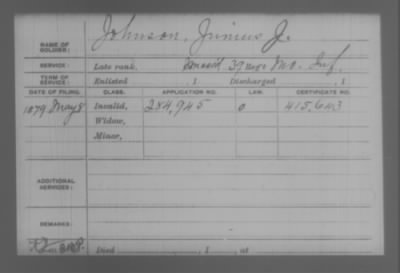 NAME OF SOLDIER: Johnson, Junius J.
SERVICE: Late rank, Unassd 39 Mo. Inf.
TERM OF SERVICE: Enlisted , 1 Discharged , 1
DATE OF FILING. CLASS. APPLICATION NO. LAW. CERTIFICATE NO.
1879 May 8 Invalid, 284,945 0 415,643
Widow,
Minor,
ADDITIONAL SERVICES:
REMARKS:
Died , 1 , at